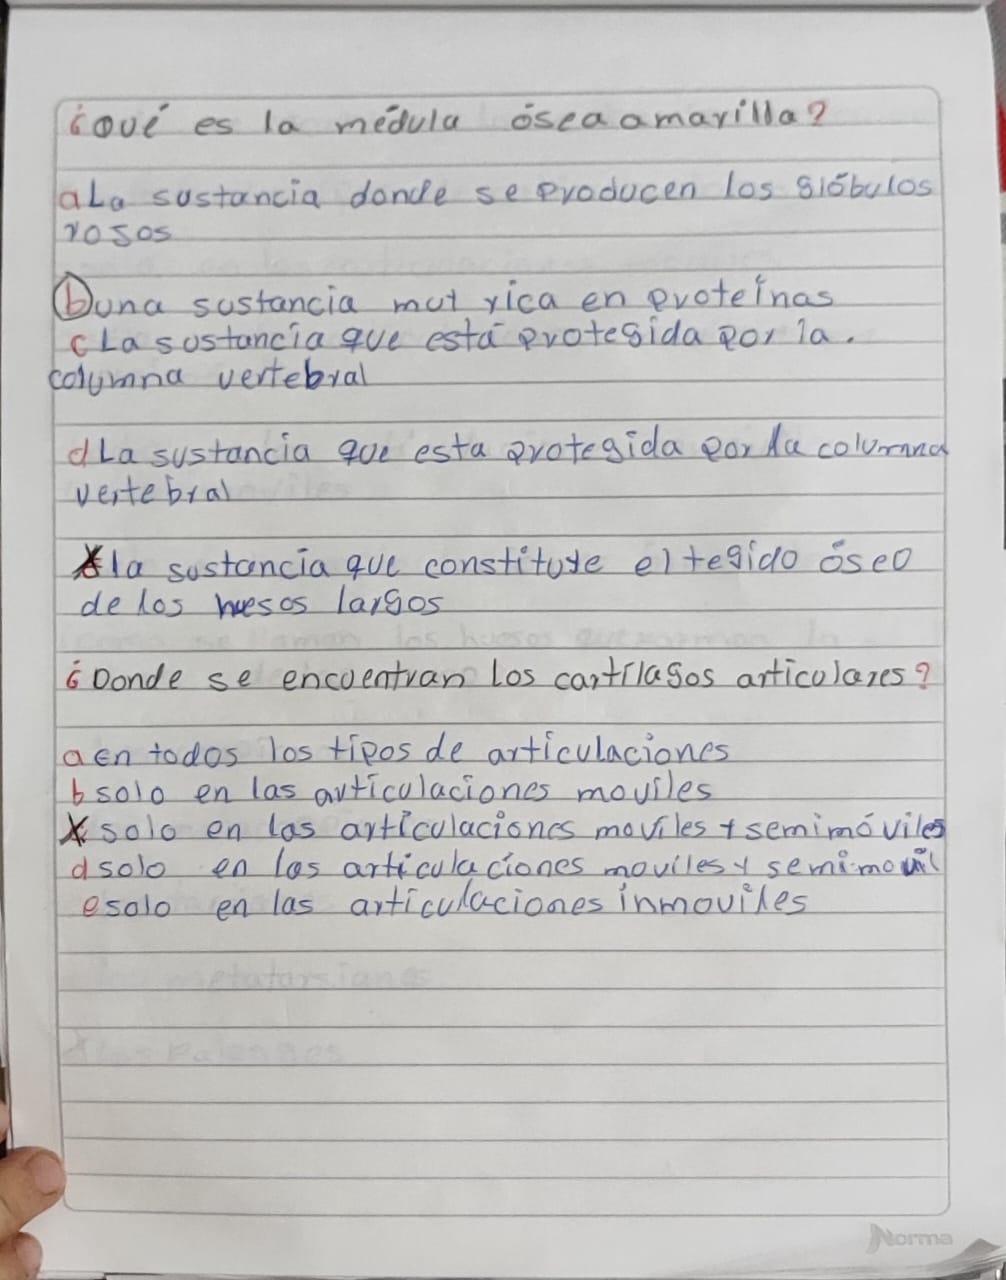 ¿Qué es la médula ósea amarilla?
a La sustancia donde se producen los glóbulos
rojos
b una sustancia muy rica en proteínas
c La sustancia que está protegida por la.
columna vertebral
d La sustancia que esta protegida por la columna
vertebral
la sustancia que constituye el tegido óseo
de los huesos largos
¿Donde se encuentran los cartílagos articulares?
a en todos los tipos de articulaciones
b solo en las articulaciones moviles
solo en las articulaciones moviles y semimóviles
d solo en las articulaciones moviles y semimovil
e solo en las articulaciones inmoviles
Norma